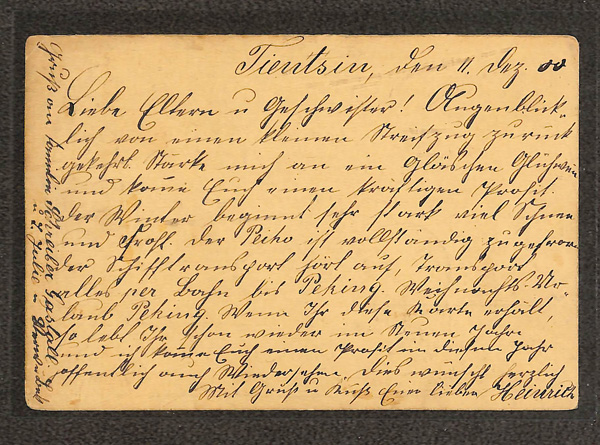 Tientsin, den 11. Dez. 00
Liebe Eltern u Geschwister! Augenblick-
lich von einen kleinen Streifzug zurück
gekehrt. Starke mich an ein Gläschen Glühwein
und komme Euch einen kräftigen Prosit.
der Winter beginnt sehr stark viel Schnee
und Frost. der Peiho ist vollständig zugefroren
der Schifftransport hört auf, Transport
alles per Bahn bis Peking. Weihnachts-Ur-
laub Peking. Wenn Ihr diese Karte erhält,
so lebt Ihr schon wieder im Neuen Jahr
und ich komme Euch einen Prosit in diesem Jahr
öffentlich auch Wiedersehen. Dies wünscht herzlich
Mit Gruß u Kuß Euer lieber Heinrich
Gruß an Familie Schreiber